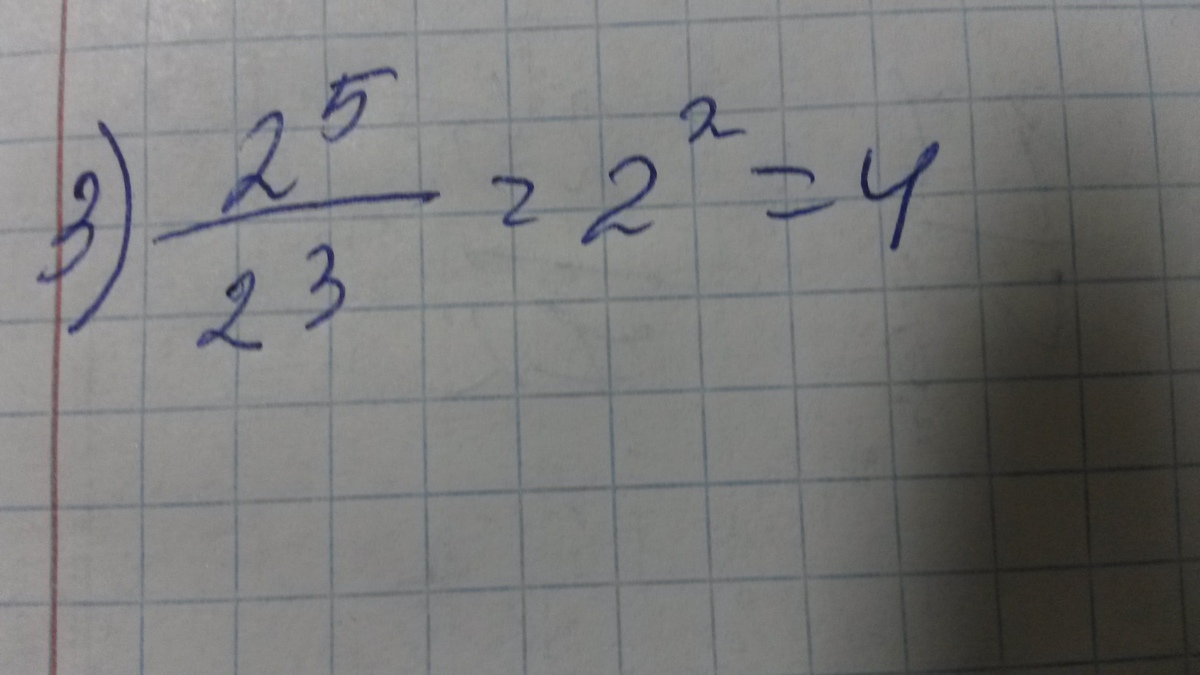 3) 2⁵/2³ = 2² = 4